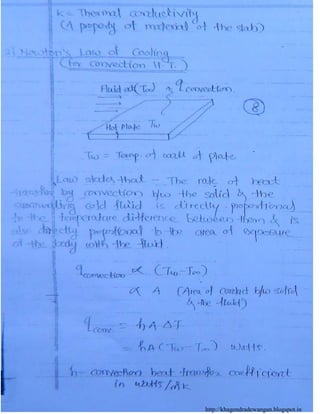 k = Thermal conductivity
(A property of material of the slab)
2) Newton's Law of Cooling
(for convection H.T.)
Fluid at (T∞) q convection.
8
Hot Plate Tw
Tw = Temp. of wall of plate
Law states that – The rate of heat
transfer by convection b/w the solid & the
surrounding cold fluid is directly proportional
to the temperature difference between them & is
also directly proportional to the area of exposure
of the body with the fluid.
qconvection ∝ (Tw-T∞)
∝ A (Area of contact b/w solid
& the fluid)
qconv. = hA ΔT
= hA (Tw-T∞) watts.
h- convection heat transfer coefficient
in watts/m²K
http://khagendradewangan.blogspot.in